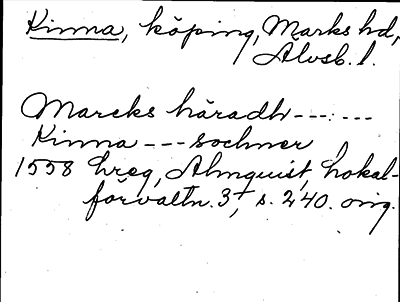 Kinna, köping, Marks hd,
Älvsb. l.
Marcks häradh --- : ---
Kinna --- sochner
1558 hreg, Almquist, Lokal-
förvaltn. 3†, s. 240. orig.